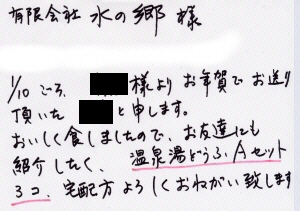 有限会社 水の郷 様
1/10ごろ、様よりお年賀でお送り
頂いたと申します。
おいしく食しましたので、お友達にも
紹介したく、温泉湯どうふAセット
3コ、宅配方よろしくおねがい致します